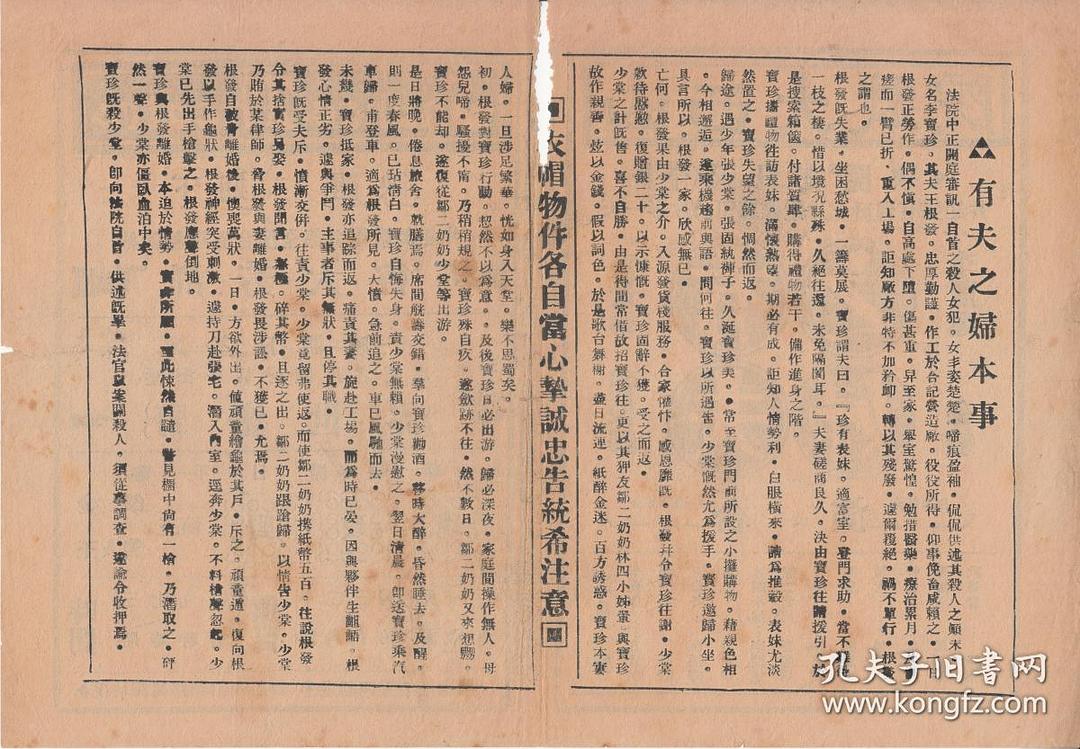 有夫之婦本事
法院中正開庭審訊一自首之殺人女犯。女丰姿楚楚。啼痕盈袖。侃侃供述其殺人之顛末
女名李寶珍。其夫王根發。忠厚勤謹。作工於合記營造廠。役役所得。仰事俛畜咸賴之。一日
根發正勞作。偶不愼。自高處下墮。傷甚重。舁至家。舉室驚惶。勉措醫藥。療治累月。
痊而一臂已折。重入工場。詎知廠方非特不加矜卹。轉以其殘廢。遽爾覆絕。禍不單行。根發
之謂也。
根發旣失業。坐困愁城。一籌莫展。寶珍謂夫曰。『珍有表妹。適富室。登門求助。當不
一枝之棲。惜以境况縣殊。久絕往還。未免隔閡耳。』夫妻磋商良久。決由寶珍往請援引。於
是搜索箱篋。付諸質肆。購得禮物若干。備作進身之階。
寶珍攜禮物往訪表妹。滿懷熱望。期必有成。詎知人情勢利。白眼橫來。請為推轂。表妹尤淡
然置之。寶珍失望之餘。惆然而返。
歸途。遇少年張少棠。張固紈褲子。久涎寶珍美。常至寶珍門前所設之小攤購物。藉親色相
。今相邂逅。遂乘機趨前與語。問何往。寶珍以所遇吿。少棠慨然允為援手。寶珍邀歸小坐。
具言所以。根發一家。欣感無已。
亡何。根發果由少棠之介。入源發貨棧服務。合家懽忭。感恩靡旣。根發幷令寶珍往謝。少棠
欵待慇懃。復贈銀二十。以示慷慨。寶珍固辭不獲。受之而返。
少棠之計旣售。喜不自勝。由是得間常借故招寶珍往。更以其狎友鄒二奶奶林四小姊輩。與寶珍
故作親善。炫以金錢。假以詞色。於是歌台舞榭。盡日流連。紙醉金迷。百方誘惑。寶珍本寠
人婦。一旦涉足繁華。恍如身入天堂。樂不思蜀矣。
衣帽物件各自當心摯誠忠告統希注意
初。根發對寶珍行動。恝然不以為意。及後寶珍日必出游。歸必深夜。家庭間操作無人。母
怨兒啼。騷擾不甯。乃稍稍規之。寶珍殊自疚。遂歛跡不往。然不數日。鄒二奶奶又來
寶珍不能却。遂復從鄒二奶奶少棠等出游。
是日將晚。倦息旅舍。就膳焉。席間觥籌交錯。羣向寶珍勸酒。移時大醉。昏然睡去。及醒。
則一度春風。已玷清白。寶珍自悔失身。責少棠無賴。少棠漫慰之。翌日清晨。卽送寶珍乘汽
車歸。甫登車。適為根發所見。大憤。急前追之。車已風馳而去。
未幾。寶珍抵家。根發亦追踪而返。痛責其妻。旋赴工場。而為時已晏。因與夥伴生齟齬。根
發心情正劣。遽與爭鬥。主事者斥其無狀。且停其職。
寶珍旣受夫斥。憤慚交併。往責少棠。少棠竟留弗使返。而使鄒二奶奶携紙幣五百。往說根發
令其捨寶珍另娶。根發聞言。羞極。碎其幣。且逐之出。鄒二奶奶踉蹌歸。以情告少棠。少棠
乃賄於某律師。脅根發與妻離婚。根發畏涉訟。不獲已。允焉。
根發自被脅離婚後。懊喪萬狀。一日。方欲外出。値頑童繪龜於其戶。斥之。頑童遁。復向根
發以手作龜狀。根發神經突受刺激。遽持刀赴張宅。潛入內室。逕奔少棠。不料槍聲忽起。少
棠已先出手槍擊之。根發應聲倒地。
寶珍與根發離婚。本迫於情勢。實非所願。覩此悚然自譴。瞥見櫥中尙有一槍。乃潛取之。砰
然一聲。少棠亦僵臥血泊中矣。
寶珍旣殺少棠。卽向法院自首。供述旣畢。法官以案關殺人。須從事調查。遂諭令收押焉。
孔夫子旧书网
www.kongfz.com